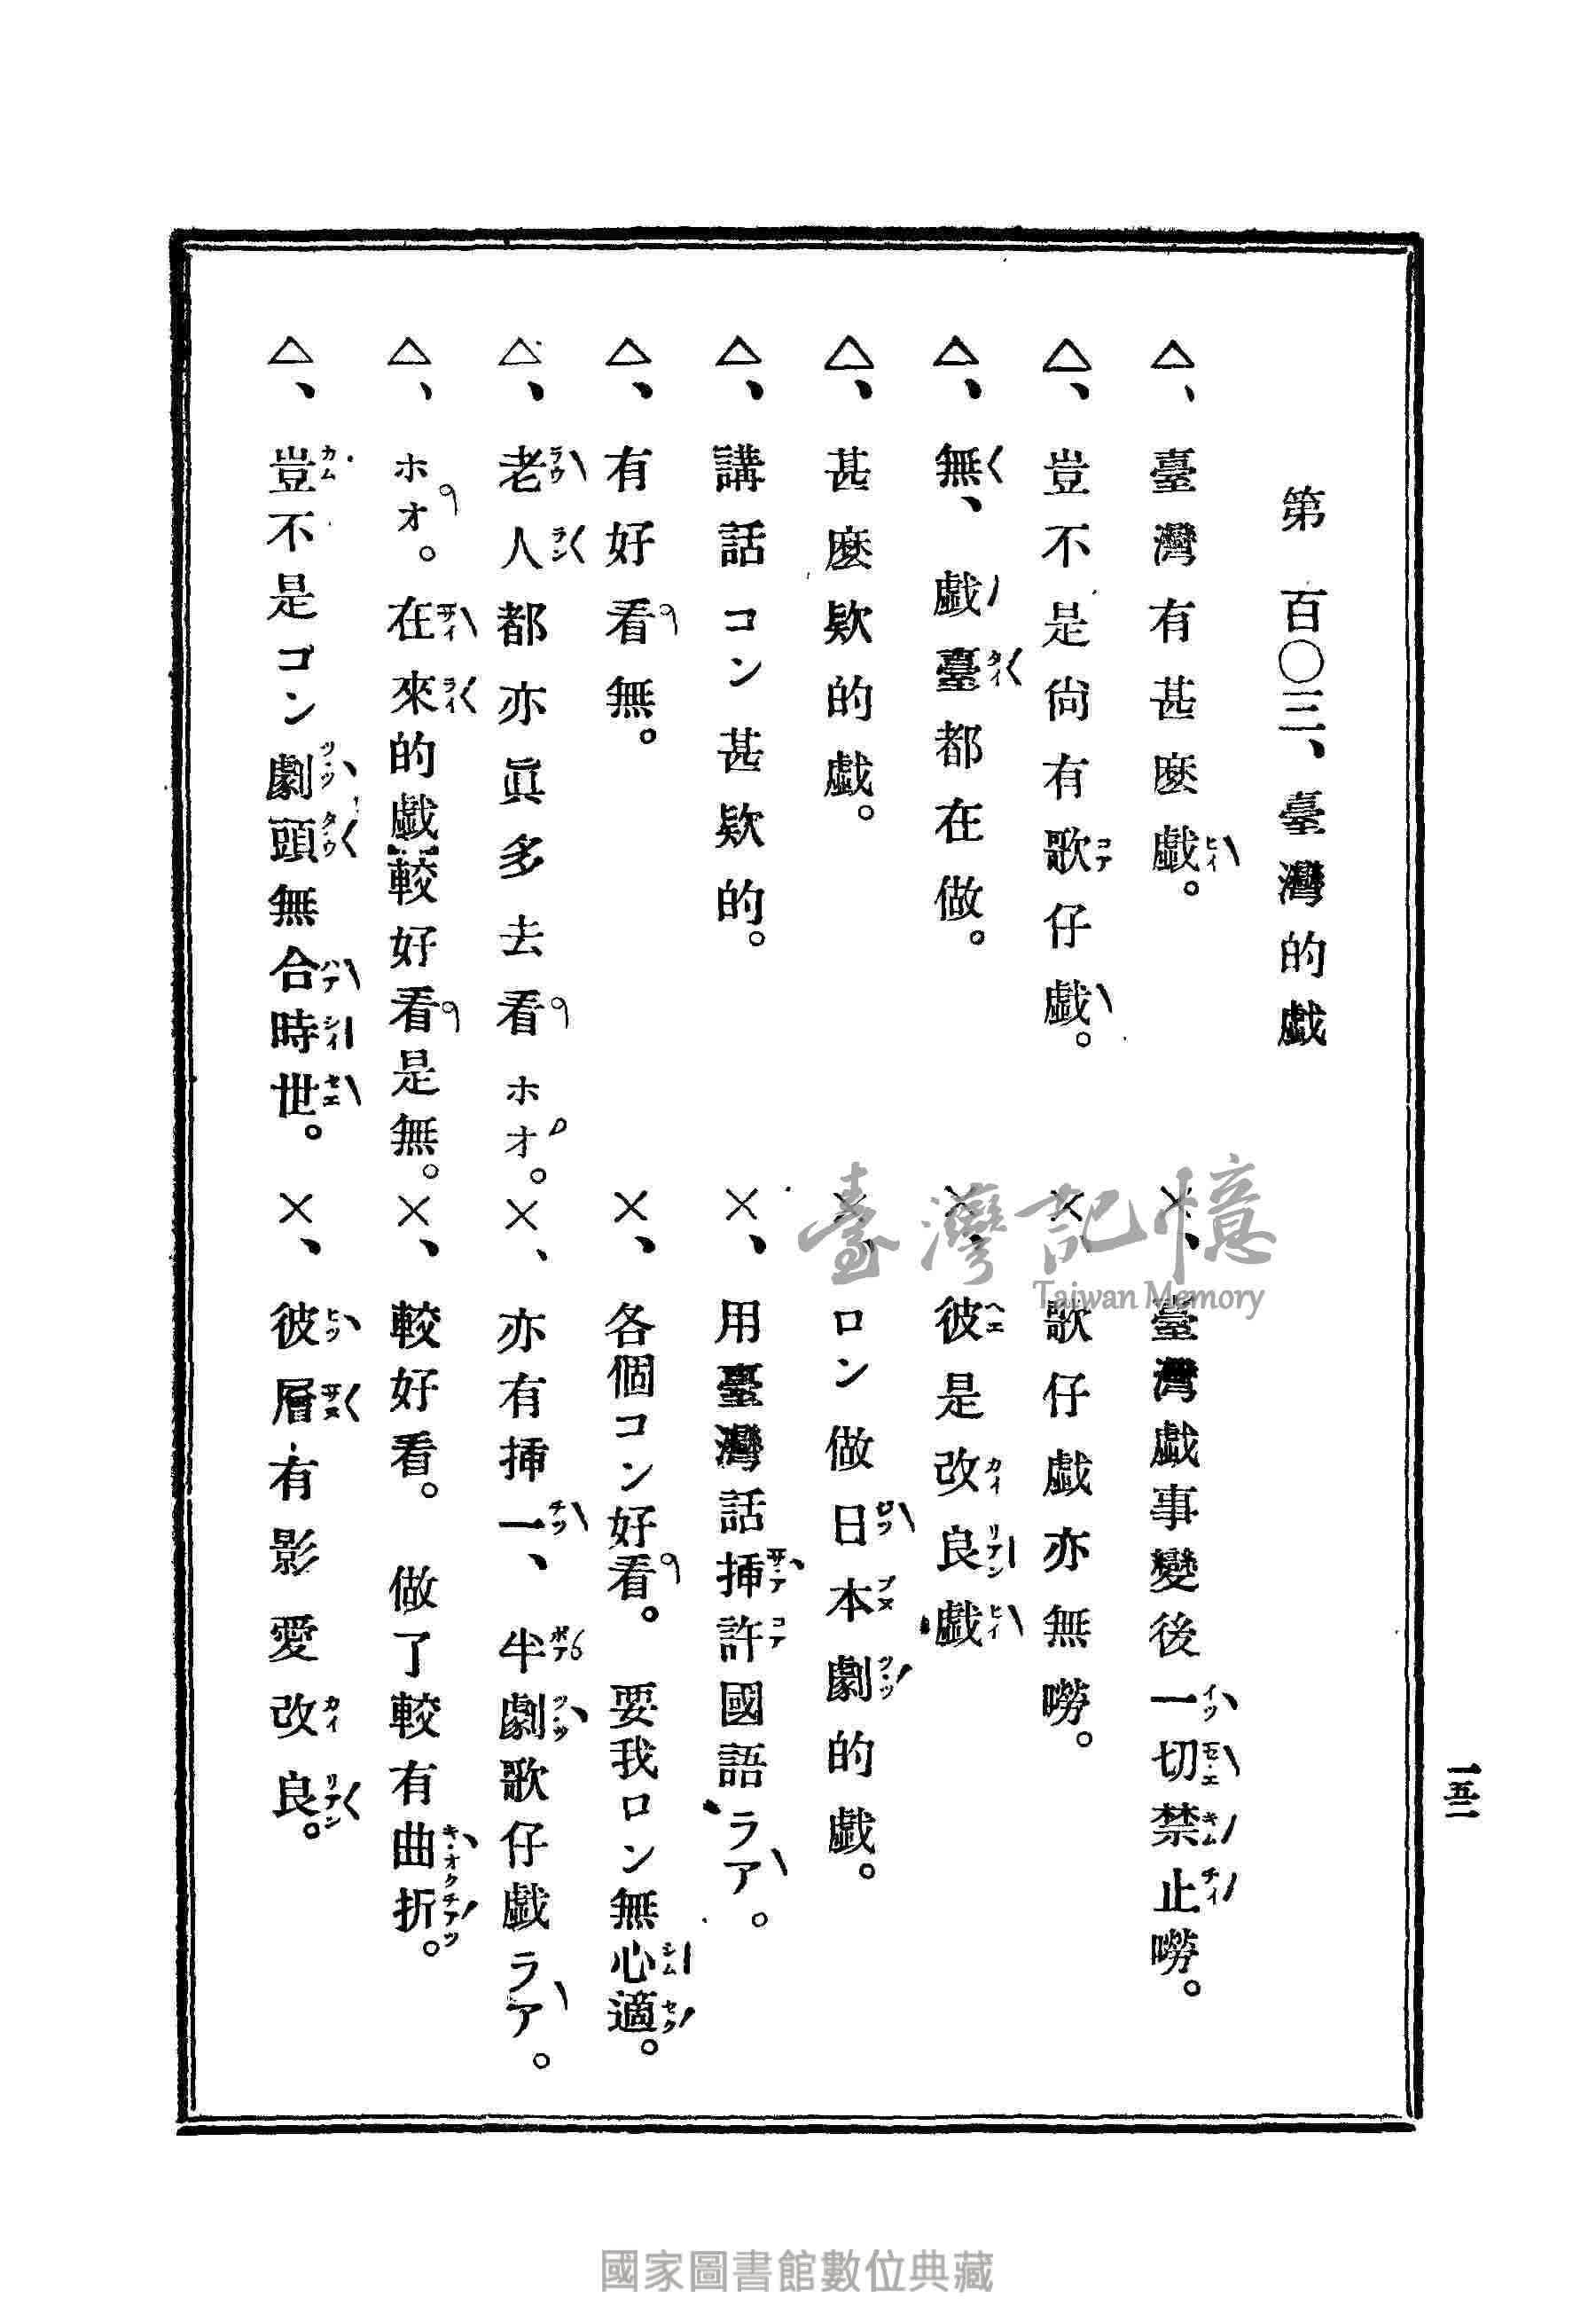 一五二
第 百〇三、臺灣的戯
△、臺灣有甚麽戯。
×、臺灣戯事變後一切禁止嘮。
△、豈不是尙有歌仔戯。
×、歌仔戯亦無嘮。
△、無、戯臺都在做。
×、彼是改良戯
△、甚麽欵的戯。
×、ロン做日本劇的戯。
△、講話コン甚欵的。
×、用臺灣話揷許國語ラア。
△、有好看無。
×、各個コン好看。要我ロン無心適。
△、老人都亦眞多去看ホオ。
×、亦有揷一、半劇歌仔戯ラア。
△、ホオ。在來的戯較好看是無。
×、較好看。做了較有曲折。
△、豈不是ゴン劇頭無合時世。
×、彼層有影愛改良。
臺灣記憶
Taiwan Memory
國家圖書館數位典藏